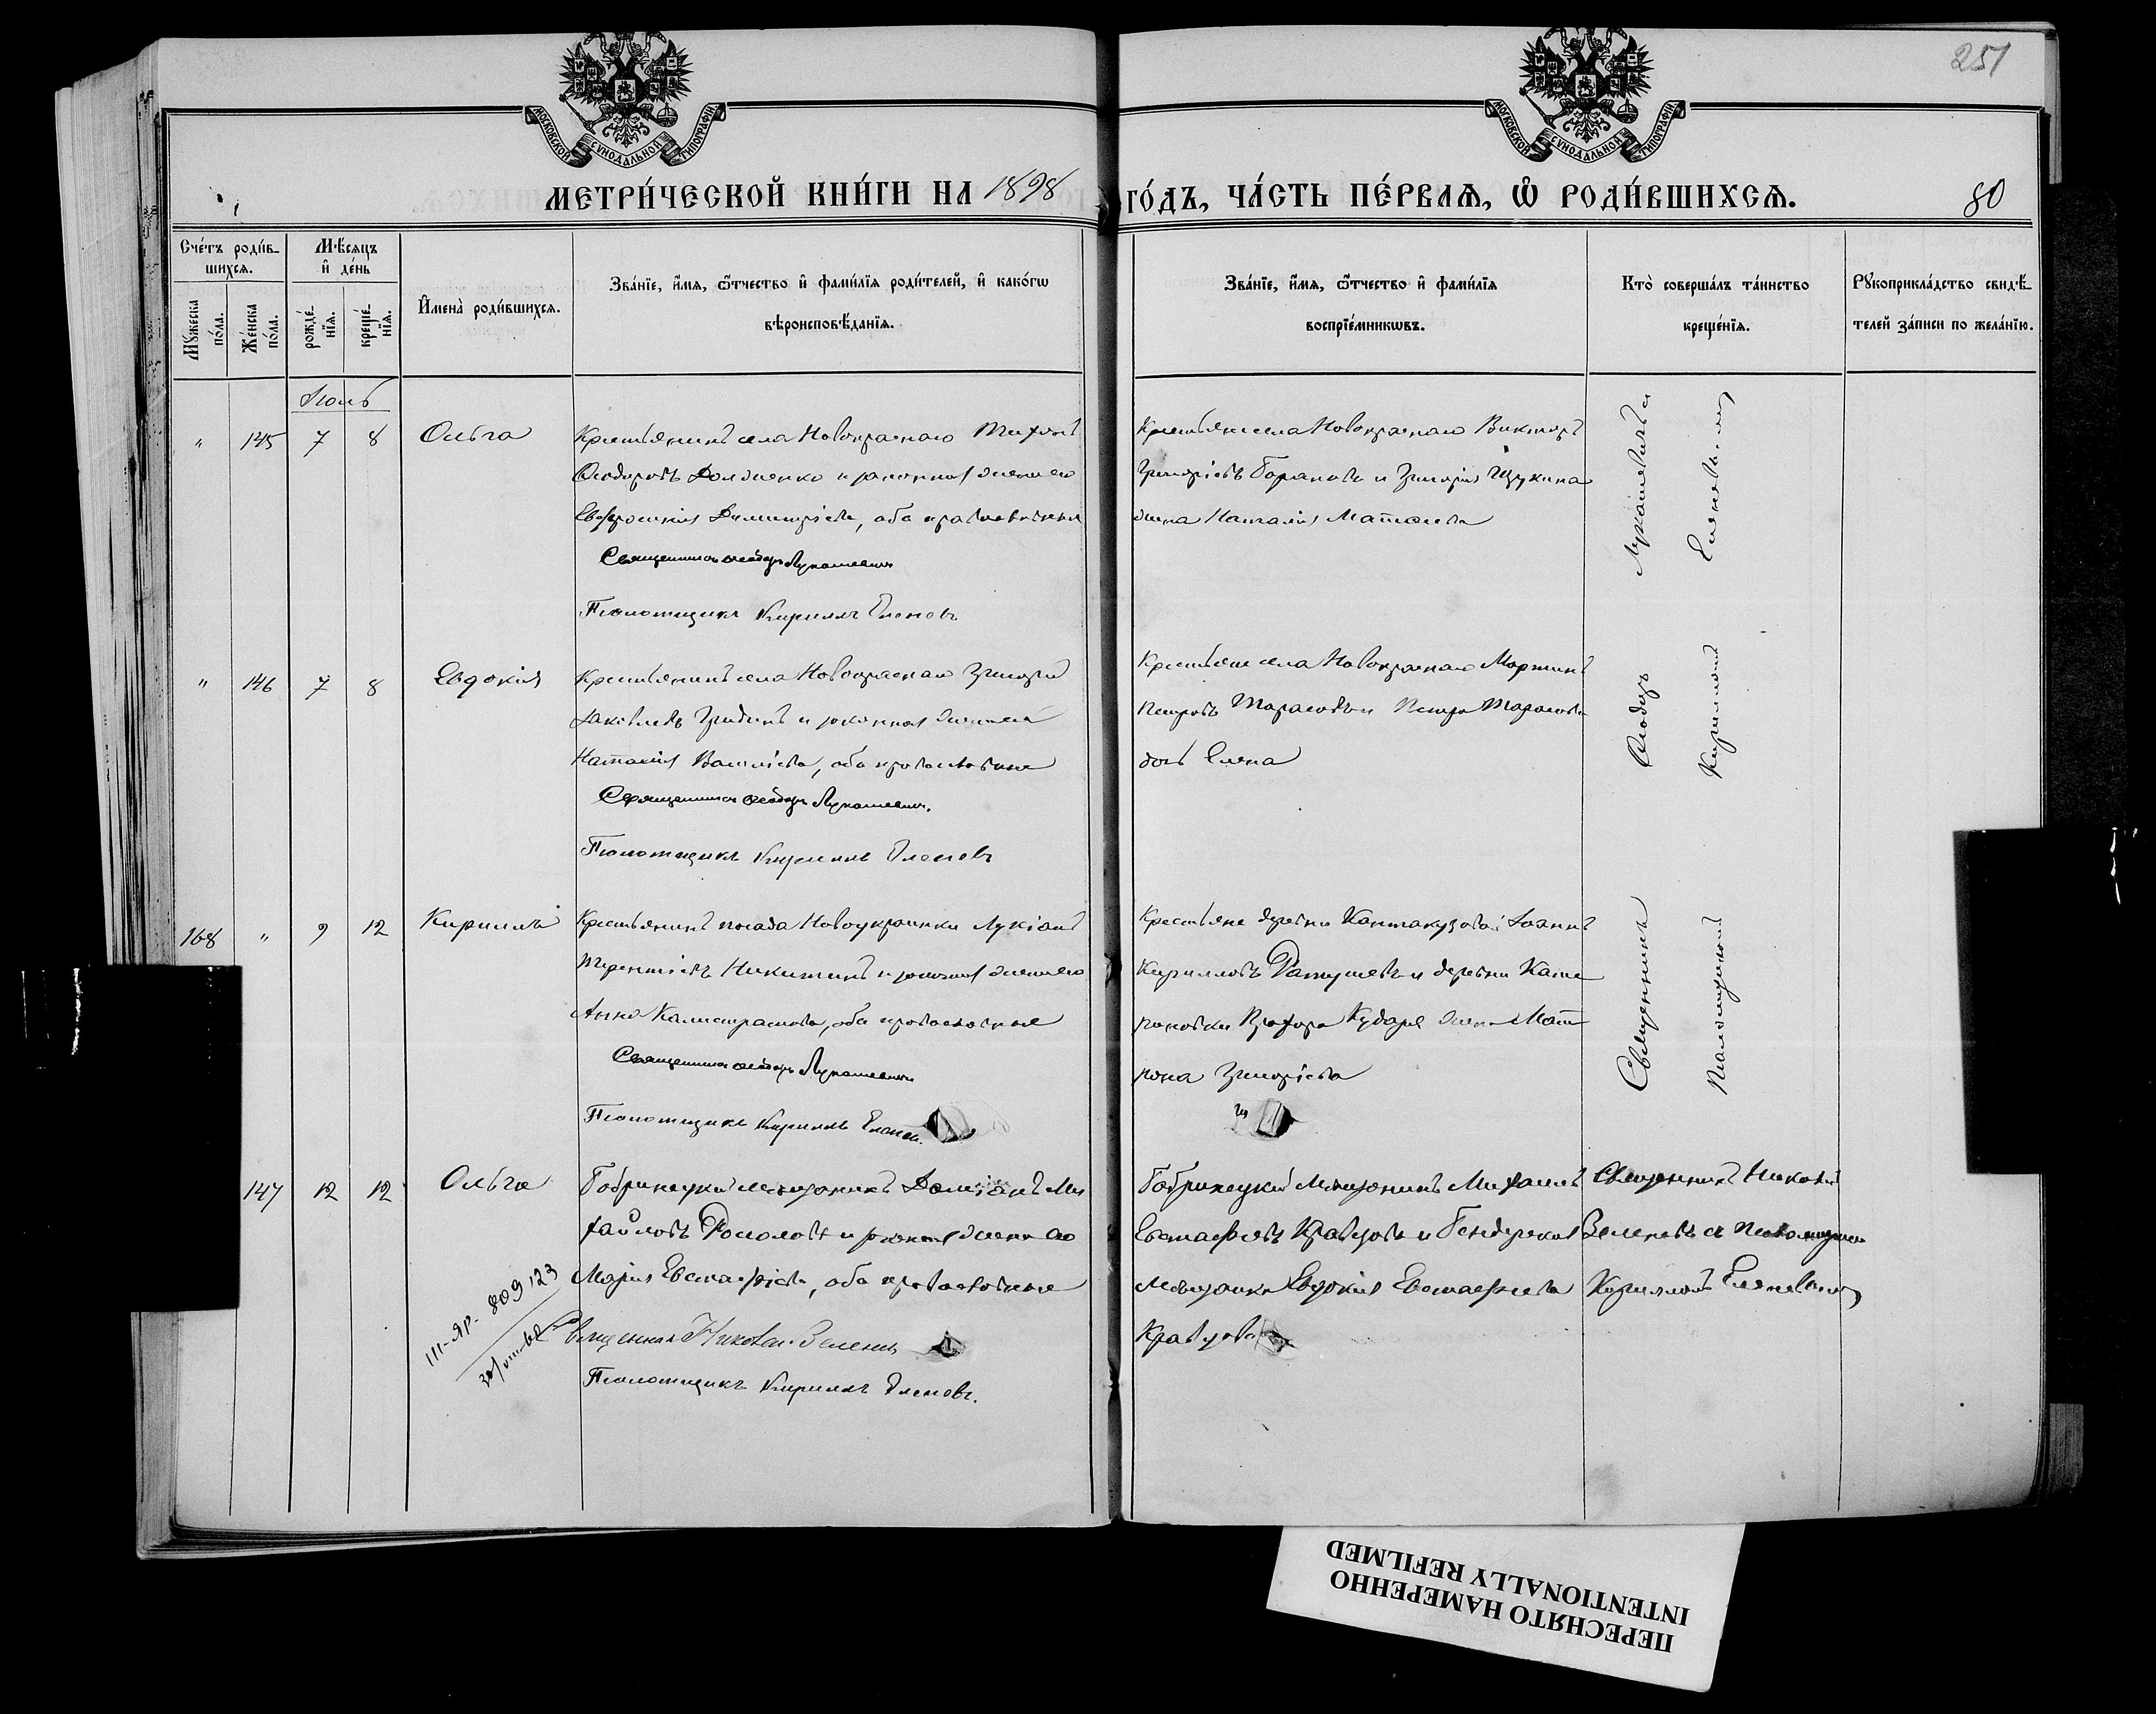 251
МОСКОВСКОЙ СѴНОДАЛЬНОЙ ТИПОГРАФІИ
МОСКОВСКОЙ СѴНОДАЛЬНОЙ ТИПОГРАФІИ
МЕТРИ́ЧЕСКОЙ КНИ́ГИ НА 1898 ГО́ДЪ, ЧА́СТЬ ПЕ́РВАѦ, Ѡ҆ РОДИ́ВШИХСѦ. 80
Сче́тъ роди́в-
шихсѧ.
Мꙋ́жеска по́ла.
Же́нска по́ла.
Мѣ́сѧцъ
и҆ де́нь
рожде́-
нїѧ.
креще́-
нїѧ.
И҆мена̀ роди́вшихсѧ.
Зва́нїе, и҆́мѧ, ѻ҆́тчество и҆ фами́лїѧ роди́телей, и҆ како́гѡ
вѣроисповѣ́данїѧ.
Зва́нїе, и҆́мѧ, ѻ҆́тчество и҆ фами́лїѧ
воспрїе́мникѡвъ.
Кто̀ соверша́лъ та́инство
креще́нїѧ.
Рꙋкоприкла́дство свидѣ́-
телей за́писи по жела́нїю.
Іюль
" 145 7 8 Ольга
Крестьянинъ села Новокраснаго Тихонъ
Ѳеодоровъ Долженко и законная жена его
Евфросинія Димитріева, оба православные
Священникъ Ѳеодоръ Лукашевичъ
Псаломщикъ Кириллъ Еленевъ
Крестьяне села Новокраснаго Викторъ
Григорьевъ Барановъ и Григорія Щукина
жена Наталія Матвеева
" 146 7 8 Евдокія
Крестьянинъ села Новокраснаго Григорій
Іаковлевъ и законная жена его
Наталія Василіева, оба православные
Священникъ Ѳеодоръ Лукашевичъ.
Псаломщикъ Кириллъ Еленевъ
Крестьяне села Новокраснаго Мартинъ
Петровъ Тарасовъ и Петра Тарасова
дочь Елена
168 " 9 12 Кириллъ
Крестьянинъ посада Новоукраинки Лукіанъ
Терентіевъ Никитинъ и законная жена его
Анна Калистратова, оба православные
Священникъ Ѳеодоръ Лукашевичъ
Псаломщикъ Кириллъ Еленевъ.
Крестьяне деревни Кантакузовой Іоаннъ
Кирилловъ Ратушевъ и деревни Кате
риновки Прохора Кударя жена Мат
рона Григоріева
Священникъ Ѳеодоръ Лукашевичъ и
Псаломщикъ Кириллъ Еленевъ
147 12 12 Ольга
Бобринецкій мѣщанинъ Даміанъ Ми
хайловъ и законная жена его
Марія Евстафіева, оба православные
Священникъ Николай Зеленевъ
Псаломщикъ Кириллъ Еленевъ.
III-ЯР- 809123
Бобринецкій мѣщанинъ Михаилъ
Евстафіевъ Кравцовъ и Бендерская
мѣщанка Евдокія Евстафіева
Кравцова
Священникъ Николай
Зеленевъ съ псаломщикомъ
Кирилломъ Еленевымъ
ПЕРЕСНЯТО НАМЕРЕННО
INTENTIONALLY REFILMED